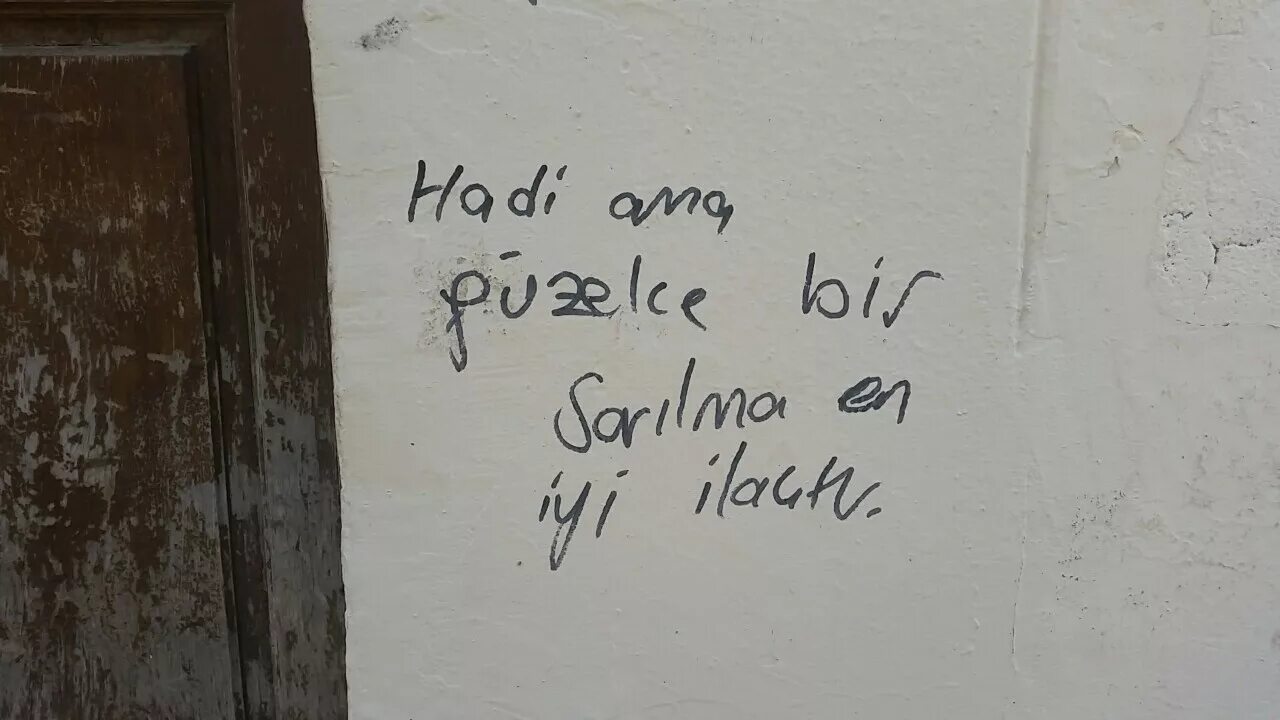 Hadi ama
güzelce bir
Sarılma en
iyi ilaçtır.